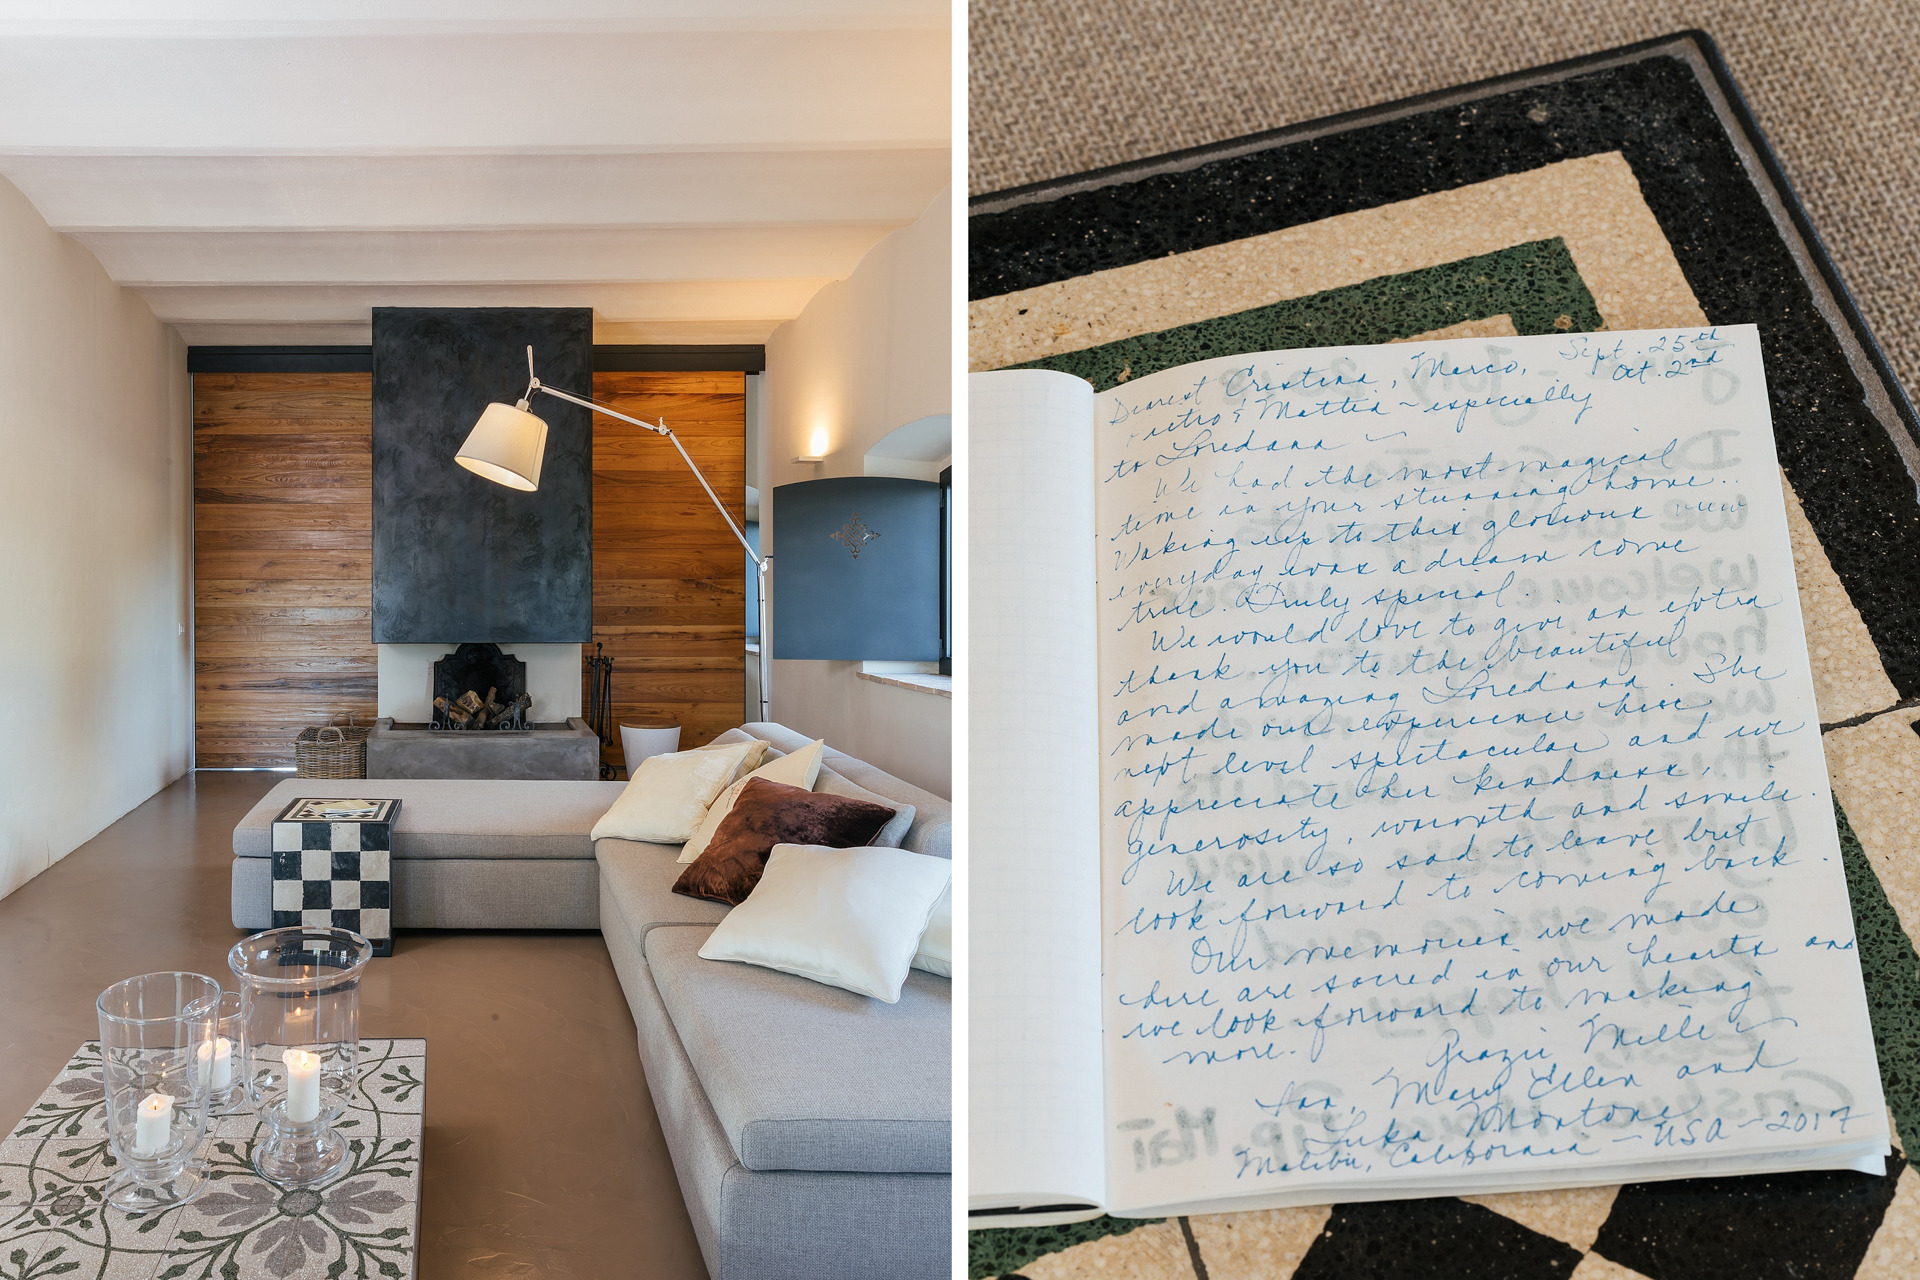 Sept. 25th
Oct. 2nd
Dearest Cristina, Marco,
Pietro & Mattia - especially
to Loredana -
We had the most magical
time in your stunning home.
Waking up to this glorious view
everyday was a dream come
true. Truly special.
We would love to give an extra
thank you to the beautiful
and amazing Loredana. She
made our experience here
next level spectacular and we
appreciate her kindness,
generosity, warmth and smile.
We are so sad to leave but
look forward to coming back.
Our memories we made
here are sacred in our hearts and
we look forward to making
more.
Grazie Mille
Mary Ellen and
Luka
Malibu, California - USA - 2017